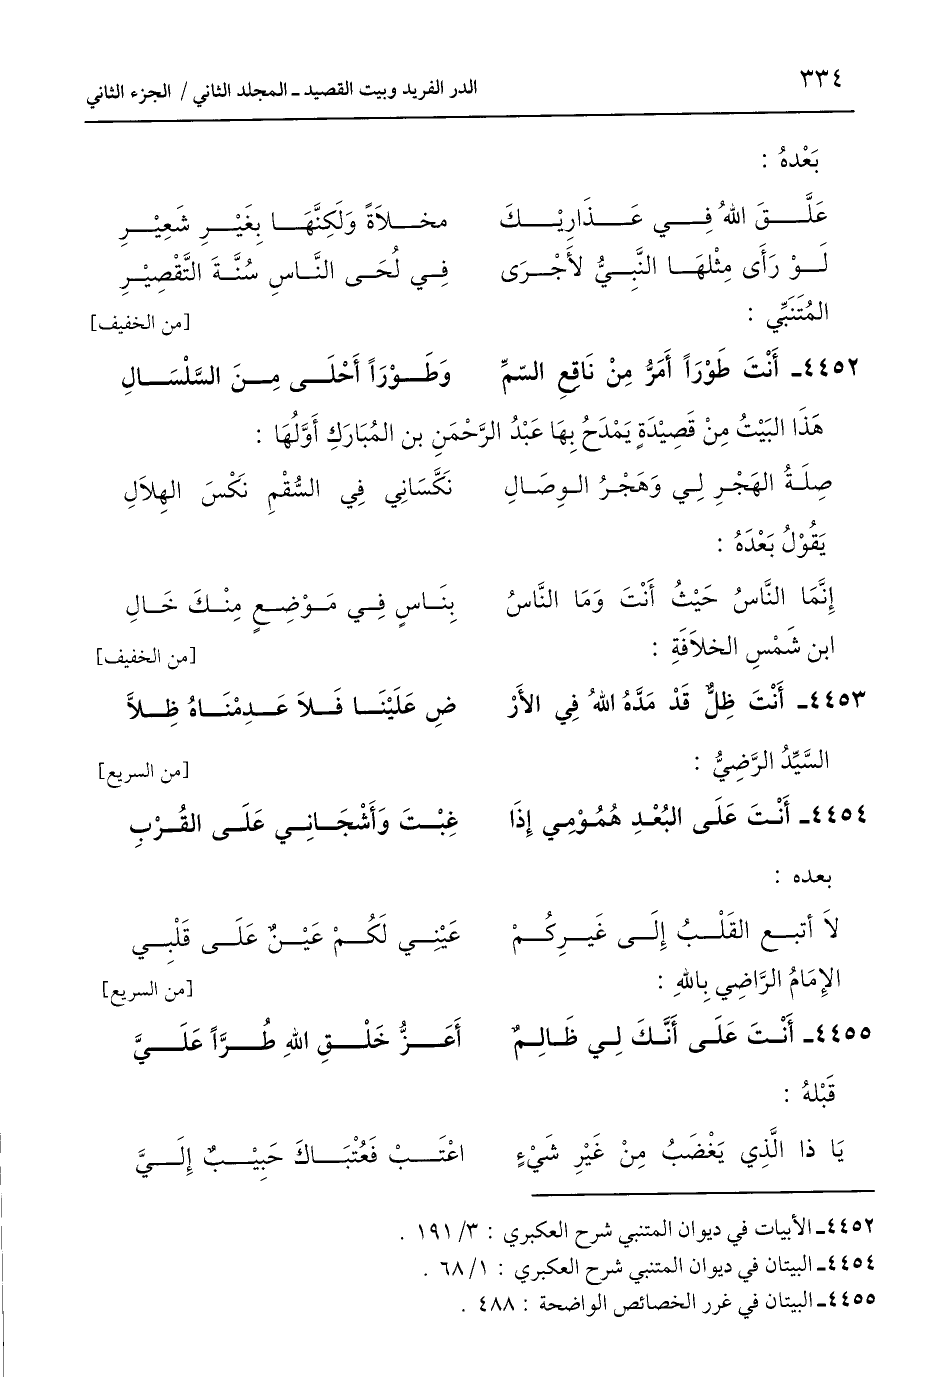 ٣٣٤ الدر الفريد وبيت القصيد ـ المجلد الثاني / الجزء الثاني
بَعْدهُ :
عَلَّــقَ اللهُ فِــي عَــذَارِيْــكَ مخــلاَةً وَلَكِنَّهَــا بِغَيْــرِ شَعِيْــرِ
لَــوْ رَأَى مِثْلهَــا النَّبِــيُّ لأَجْــرَى فِــي لُحَــى النَّــاسِ سُنَّــةَ التَّقْصِيْــرِ
المُتَنَبِّي : [من الخفيف]
٤٤٥٢ـ أَنْتَ طَوْرَاً أَمَرُّ مِنْ نَاقِعِ السّمِّ وَطَــوْرَاً أَحْلَــى مِــنَ السَّلْسَــالِ
هَذَا البَيْتُ مِنْ قَصِيْدَةٍ يَمْدَحُ بِهَا عَبْدُ الرَّحْمَنِ بن المُبَارَكِ أَوَّلُهَا :
صِلَــةُ الهَجْــرِ لِــي وَهَجْــرُ الــوِصَــالِ نَكَّسَــانِي فِــي السُّقْــمِ نَكْــسَ الهِلاَلِ
يَقُوْلُ بَعْدَهُ :
إِنَّمَا النَّاسُ حَيْثُ أَنْتَ وَمَا النَّاسُ بِنَــاسٍ فِــي مَــوْضِــعٍ مِنْــكَ خَــالِ
ابن شَمْسِ الخلاَفَةِ : [من الخفيف]
٤٤٥٣ـ أَنْتَ ظِلٌّ قَدْ مَدَّهُ اللهُ فِي الأَرْ ضِ عَلَيْنَــا فَــلاَ عَــدِمْنَــاهُ ظِــلاَّ
السَّيِّدُ الرَّضِيُّ : [من السريع]
٤٤٥٤ـ أَنْــتَ عَلَــى البُعْــدِ هُمُــوْمِي إِذَا غِبْــتَ وَأَشْجَــانِــي عَلَــى القُــرْبِ
بعده :
لاَ أتبــع القَلْــبُ إِلَــى غَيــرِكُــمْ عَيْنِــي لَكُــمْ عَيْــنٌ عَلَــى قَلْبِــي
الإِمَامُ الرَّاضِي بِاللهِ : [من السريع]
٤٤٥٥ـ أَنْــتَ عَلَــى أَنَّــكَ لِــي ظَالِــمٌ أَعَــزُّ خَلْــقِ اللهِ طُــرَّاً عَلَــيَّ
قَبْلهُ :
يَا ذا الَّذِي يَغْضَبُ مِنْ غَيْرِ شَيْءٍ اعْتَــبْ فَعُتْبَــاكَ حَبِيْــبٌ إِلَــيَّ
٤٤٥٢ـ الأبيات في ديوان المتنبي شرح العكبري : ٣/ ١٩١ .
٤٤٥٤ـ البيتان في ديوان المتنبي شرح العكبري : ١/ ٦٨ .
٤٤٥٥ـ البيتان في غرر الخصائص الواضحة : ٤٨٨ .